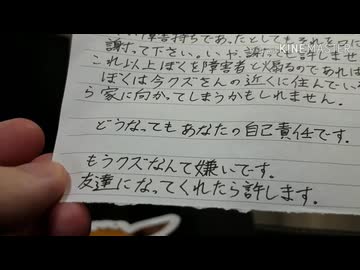 KINEMASTER
謝って下さい。いや、謝っても許しませ
これ以上ぼくを障害者と煽るのであれば
ぼくは今クズさんの近くに住んでい
ら家に向かってしまうかもしれません。
どうなってもあなたの自己責任です。
もうクズなんて嫌いです。
友達になってくれたら許します。